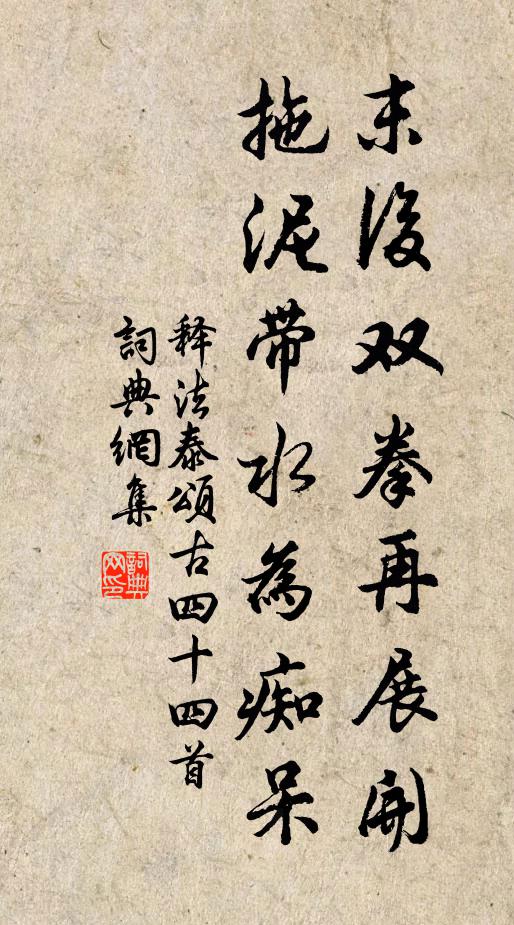 末後双拳再展開
拖泥带水為痴呆
释法泰頌古四十四首
詞典網集
詞典
网印